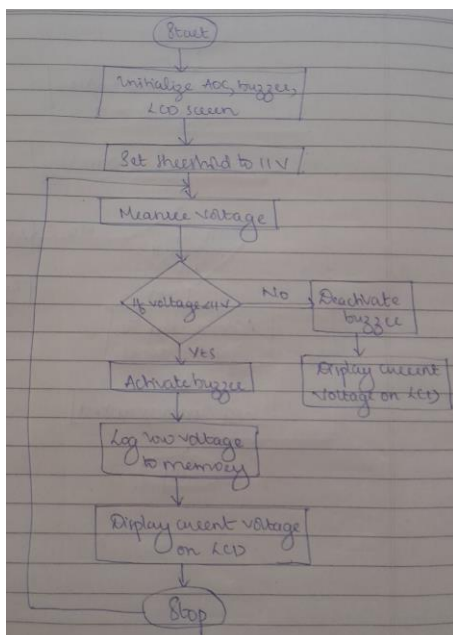 Start
Initialize ADC, buzzer,
LCD screen
Set threshold to 11V
Measure voltage
If voltage <11V
No
Deactivate
buzzer
Display current
voltage on LCD
Yes
Activate buzzer
Log low voltage
to memory
Display current voltage
on LCD
Stop